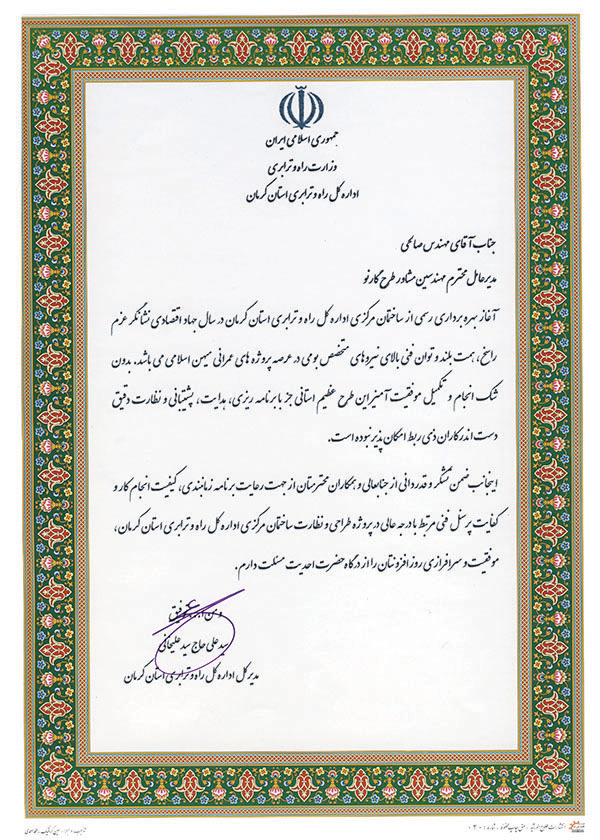 جمهوری اسلامی ایران
وزارت راه و ترابری
اداره کل راه و ترابری استان کرمان
جناب آقای مهندس صالحی
مدیرعامل محترم مهندسین مشاور طرح کارنو
آغاز بهره برداری رسمی از ساختمان مرکزی اداره کل راه و ترابری استان کرمان در سال جهاد اقتصادی نشانگر عزم
راسخ، همت بلند و توان فنی بالای نیروهای متخصص بومی در عرصه پروژه های عمرانی میهن اسلامی می باشد. بدون
شک انجام و تکمیل موفقیت آمیز این طرح عظیم استانی جز با برنامه ریزی، هدایت، پشتیبانی و نظارت دقیق
دست اندرکاران ذی ربط امکان پذیر نبوده است.
اینجانب ضمن تشکر و قدردانی از جنابعالی و همکاران محترمتان از جهت رعایت برنامه زمانبندی، کیفیت انجام کار و
کفایت پرسنل فنی مرتبط با درجه عالی در پروژه طراحی و نظارت ساختمان مرکزی اداره کل راه و ترابری استان کرمان،
موفقیت و سرافرازی روز افزونتان را از درگاه حضرت احدیت مسئلت دارم.
و من ا... توفیق
سید علی حاج سید علیخانی
مدیر کل اداره کل راه و ترابری استان کرمان